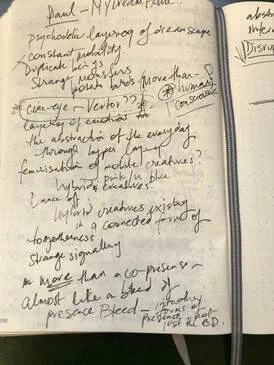 Paul – MYDreamFone.
psychedelic layering of dreamscape
constant mobility
Duplicate beings
strange monsters
birds – more than
* human
conscious
* cine-eye – Vertov??
layers of emotion too
the abstraction of the everyday
through hyper layering
feminisation of mobile creatures?
pink/n blue
hybrid creatures.
Dance off
Hybrid creatures existing
in a connected form of
togetherness
strange signalling
more than a co-presence –
almost like a bleed of
presence Bleed – introducing
forms of
presence – not
just the C.D.
abst
inter
Disrup